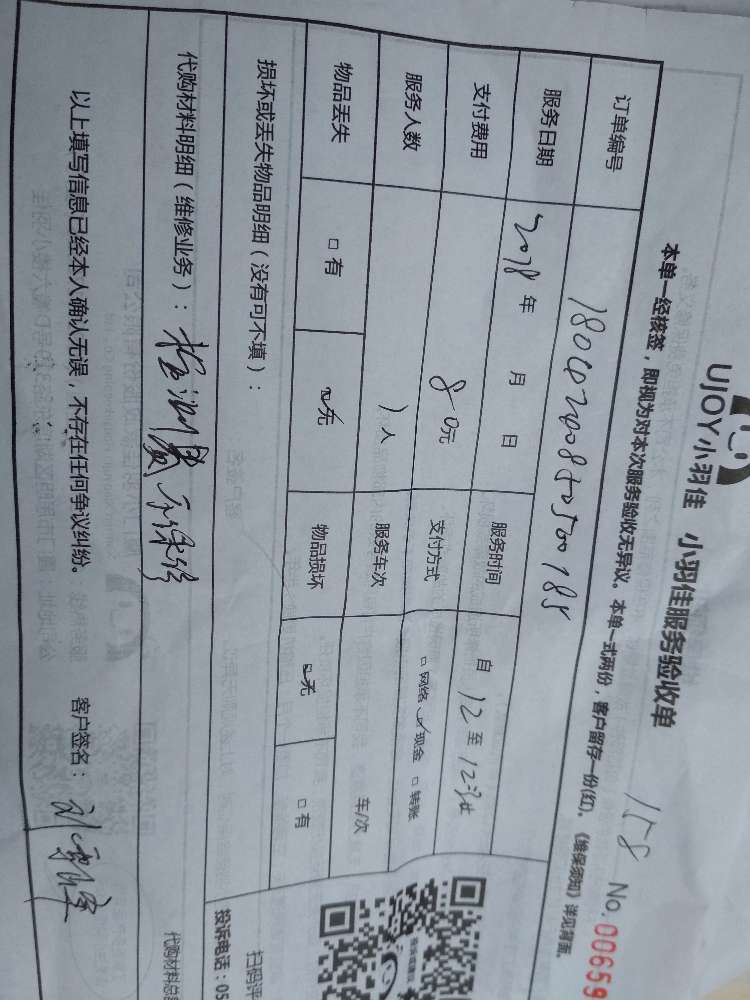 UJOY小羽佳 小羽佳服务验收单
158 No.00659
本单一经核签，即视为对本次服务验收无异议。本单一式两份，客户留存一份(红)。《维保须知》详见背面。
订单编号
服务日期 2018年 月 日 服务时间 自 12 至 12
支付费用 80元 支付方式 □网络 ☑现金 □转账
服务人数 1人 服务车次 车/次
物品丢失 □有 ☑无 物品损坏 ☑无 □有
损坏或丢失物品明细（没有可不填）：
扫码评
投诉电话：05
代购材料明细（维修业务）：检测费不保修
代购材料总
以上填写信息已经本人确认无误，不存在任何争议纠纷。 客户签名：